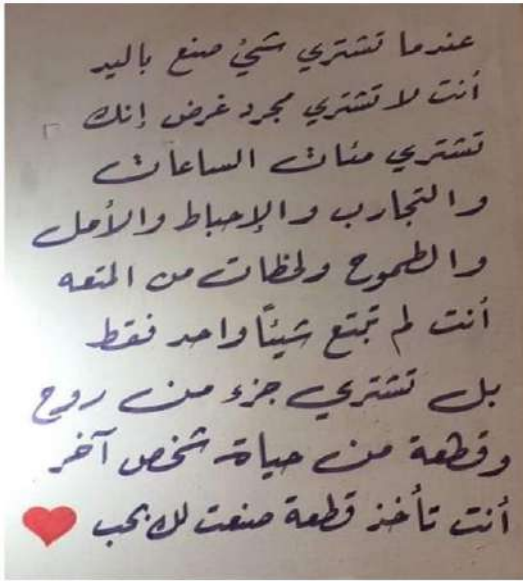 عندما تشتري شئ صنع باليد
أنت لا تشتري مجرد غرض إنك
تشتري مئات الساعات
والتجارب والإحباط والأمل
والطموح ولحظات من المتعه
أنت لم تبتع شيئاً واحد فقط
بل تشتري جزء من روح
وقطعة من حياة شخص آخر
أنت تأخذ قطعة صنعت لك بحب